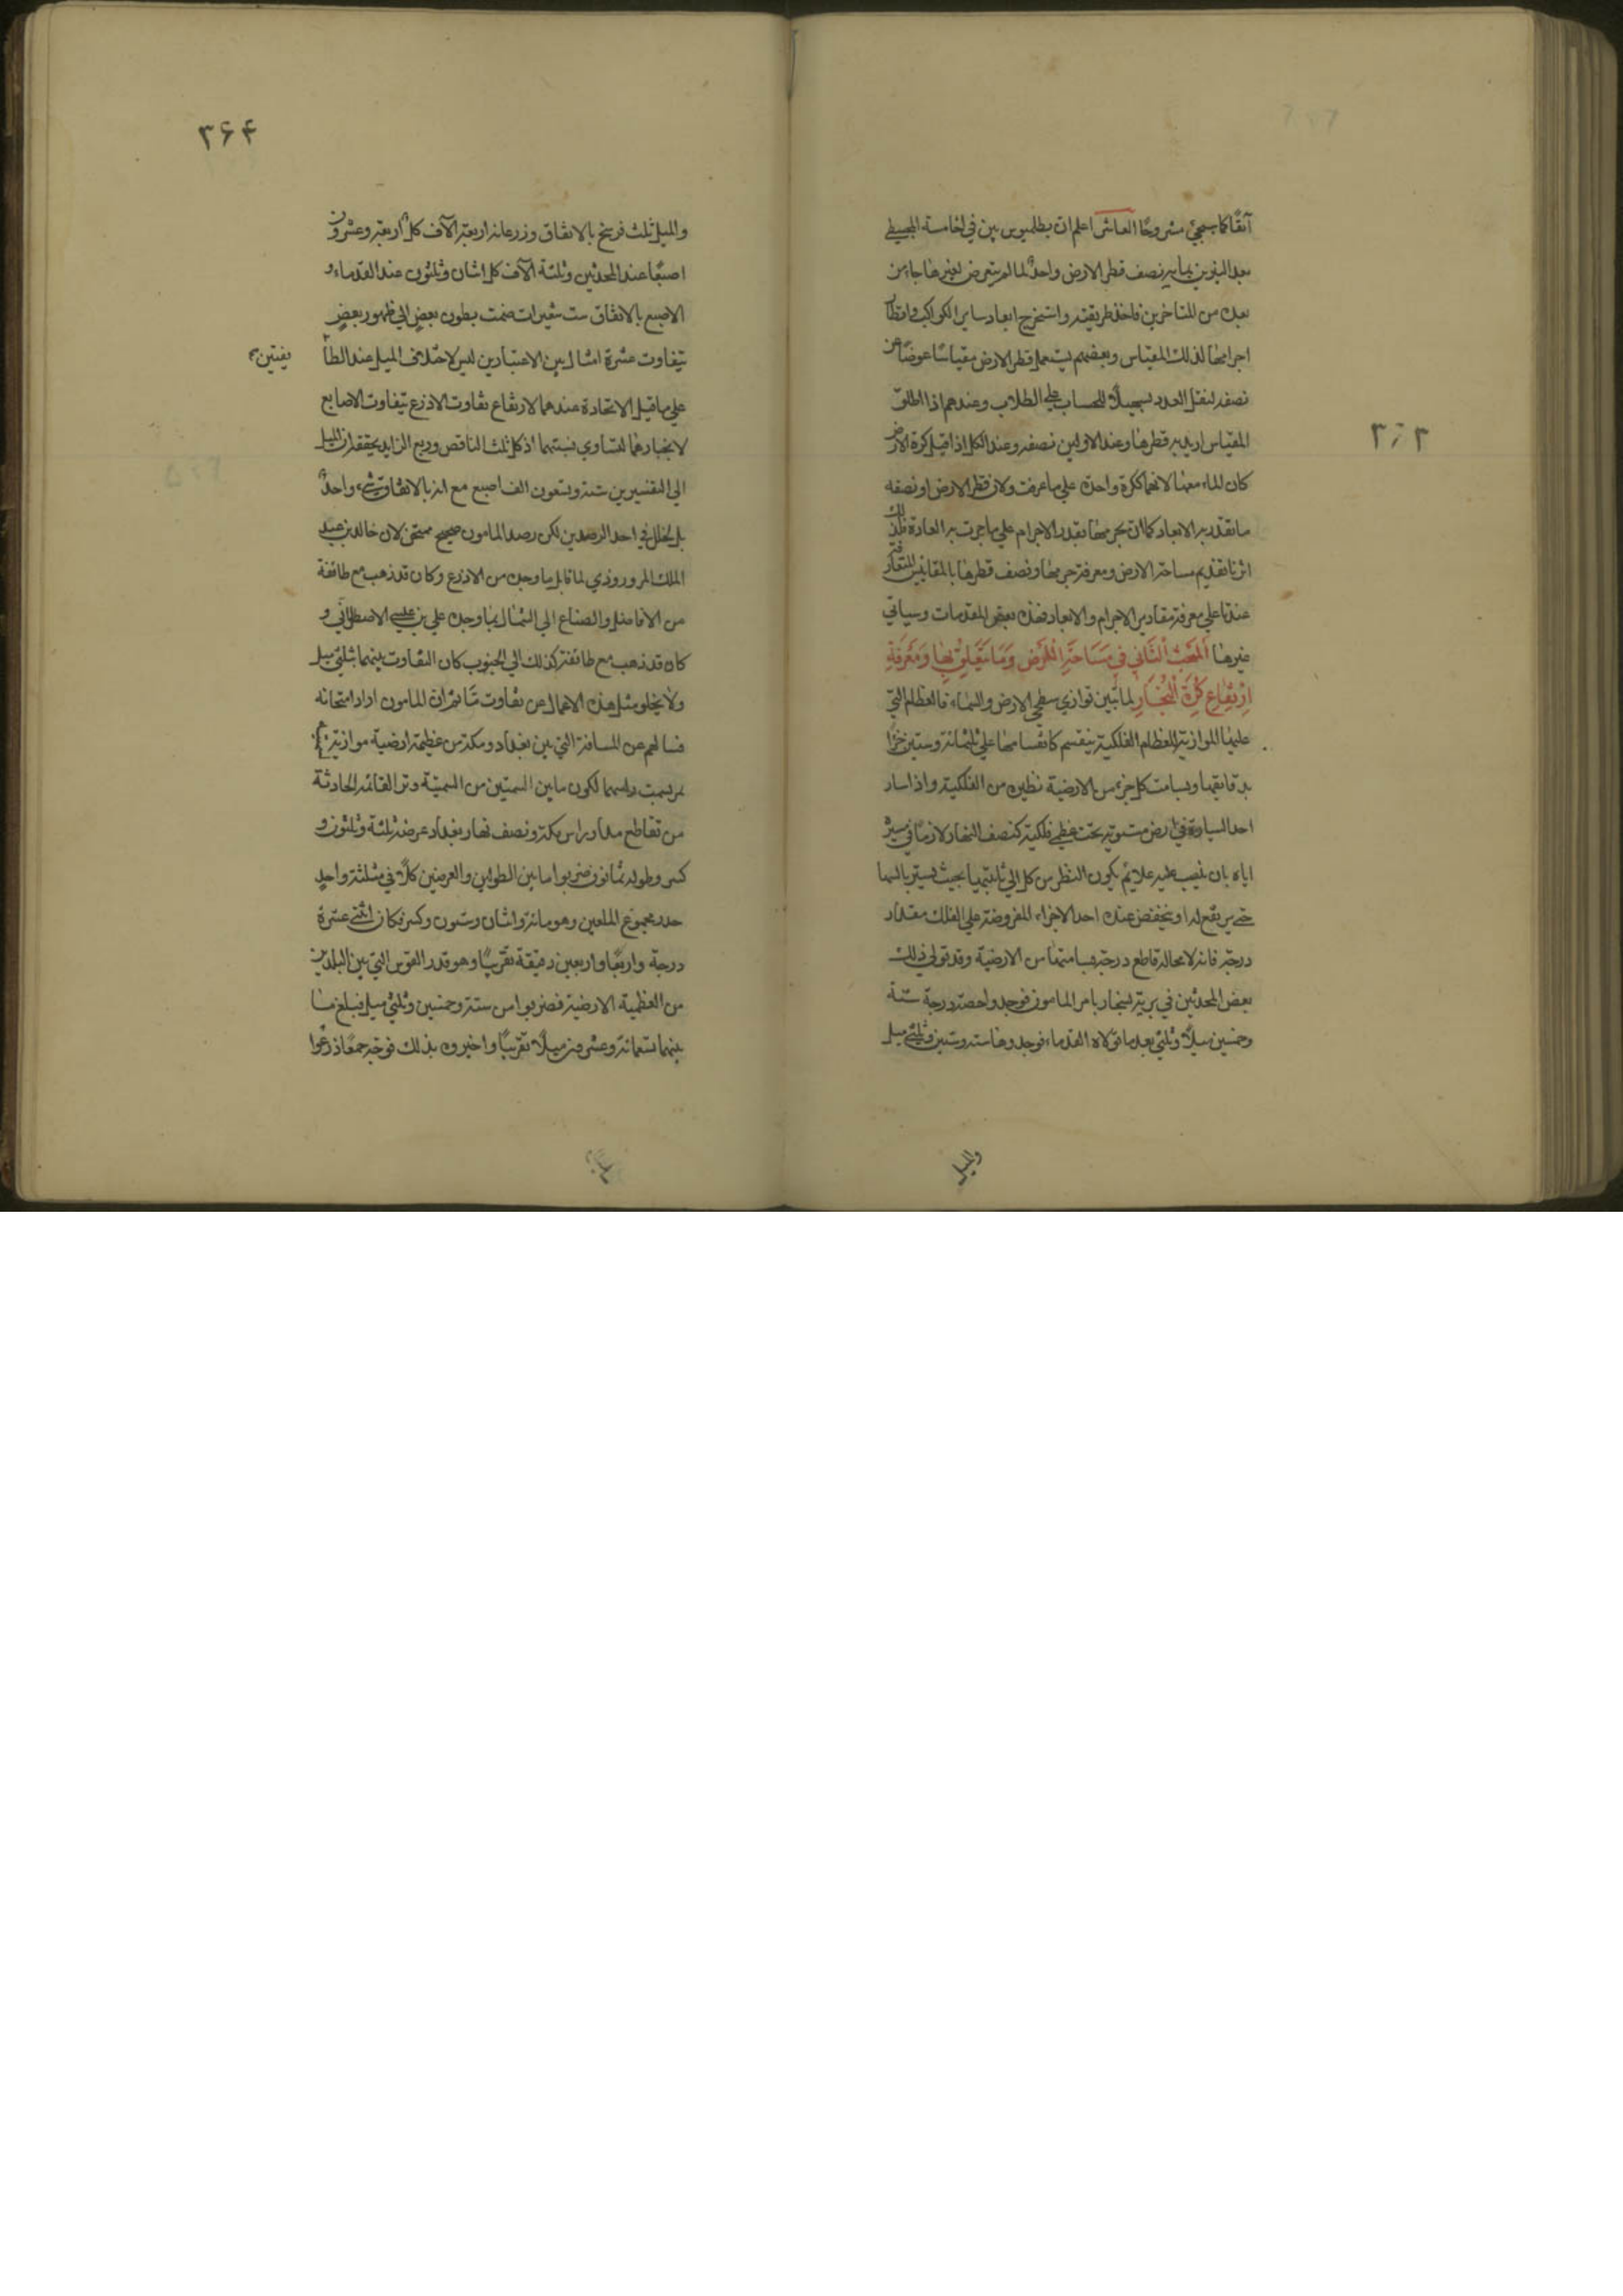 آنفًا كما سيجئ مشروحًا العاشر اعلم ان بطلميوس بين في الخامسة المجسطي
بعد النيرين بما به نصف قطر الارض واحدٌ لما لم يتعرض لغيرهما جاء من
بعده من المتاخرين فاخذ طريقته واستخرج ابعاد ساير الكواكب واقطار
اجرامها لذلك المقياس وبعضهم يستعمل قطر الارض مقياسًا عوضًا عن
نصفه لتقل العدد تسهيلًا للحساب على الطلاب وعندهم اذا اطلق
المقياس اريد به قطرها وعند الاولين نصفه وعند الكل اذا قيل كرة الارض
كان الماء معها لانهما ككرة واحدة علي ما عرفت ولان قطر الارض او نصفه
ما تقدر به الابعاد كما ان بجرمها تقدر الاجرام علي ما جرت به العادة فلذلك
اثرنا تقديم مساحة الارض ومعرفة جرمها ونصف قطرها بالمقاييس المتعارفة
عندنا علي معرفة مقادير الاجرام والابعاد فهذه بعض المقدمات وسياتي
غيرها المبحث الثاني في مساحة الارض وما يتعلق بها ومعرفة
ارتفاع كرة البخار لما تبين توازي سطحي الارض والسماء فالعظام التي
عليها الموازية للعظام الفلكية ينقسم كانقسامها علي ثلثمائة وستين جزءًا
بدقايقها ويسامت كل جزء من الارضية نظيره من الفلكية واذا سار
احد السيارة في ارض مستوية تحت عظمي فلكية كنصف النهار لازمًا في سيره
اياه بان ينصب عليه علايم يكون النظر من كل الي ثانيتهما بحيث يستتر بالها
حتي يرتفع له او ينخفض عنده احد الاجزاء المفروضة علي الفلك مقدار
درجة فانه لا محالة قاطع درجة مسامتها من الارضية وقد تولي ذلك
بعض المحدثين في برية سنجار بامر المامون فوجدوا حصة درجة ستة
وخمسين ميلًا وثلثي بعد ما تولاه القدماء فوجدوها ستة وستين وثلثي ميل
والميل
٣٦٣
٣۶۴
والميل ثلث فرسخ بالاتفاق وذرعانه اربعة آلاف كل اربعة وعشرون
اصبعًا عند المحدثين وثلثة آلاف كل اثنان وثلثون عند القدماء و
الاصبع بالاتفاق ست شعيرات ضمت بطون بعض الي ظهور بعض
يتفاوت عشرة اميال بين الاعتبارين ليس لاختلاف الميل عند الطا
يفتين
علي ما قيل لاتحاده عندهما لارتفاع تفاوت الاذرع بتفاوت الاصابع
لانجبارهما لتساوي نسبتهما اذ كل ثلث الناقص وربع الزايد يحققه ان الميل
الي التفسيرين ستة وتسعون الف اصبع مع انه بالاتفاق شيء واحدٌ
بل الخلل في احد الرصدين لكن رصد المامون صحيح ممتحن لان خالد بن عبد
الملك المروروذي لما قابل ما وجده من الاذرع وكان قد ذهب مع طائفة
من الافاضل والصناع الي الشمال بما وجده علي بن عيسي الاصطرلابي و
كان قد ذهب مع طائفة كذلك الي الجنوب كان التفاوت بينهما بثلثي ميل
ولا يخلو مثل هذه الاعمال من تفاوت مّا ثم ان المامون اراد امتحانه
فسالهم عن المسافة التي بين بغداد ومكة من عظيمة ارضية موازية
لم بسمت راسهما لكون ما بين السمتين من السمتية وتر القائمة الحادثة
من تقاطع مدار راس مكة ونصف نهار بغداد عرضه ثلثة وثلثون و
كسر وطوله ثمانون ضربوا ما بين الطولين والعرضين كلًا في مثلثة واحدٍ
جذر مجموع المبلغين وهو مائة واثنان وستون وكسر فكان اثني عشرة
درجة واربعًا واربعين دقيقة تقريبًا وهو قدر القوس التي بين البلدين
من العظيمة الارضية فضربوا من ستة وخمسين وثلثي ميل فبلغ ما
بينهما سبعمائة وعشرون ميلًا تقريبًا واخبروه بذلك فوجه جمعًا ذرعوا